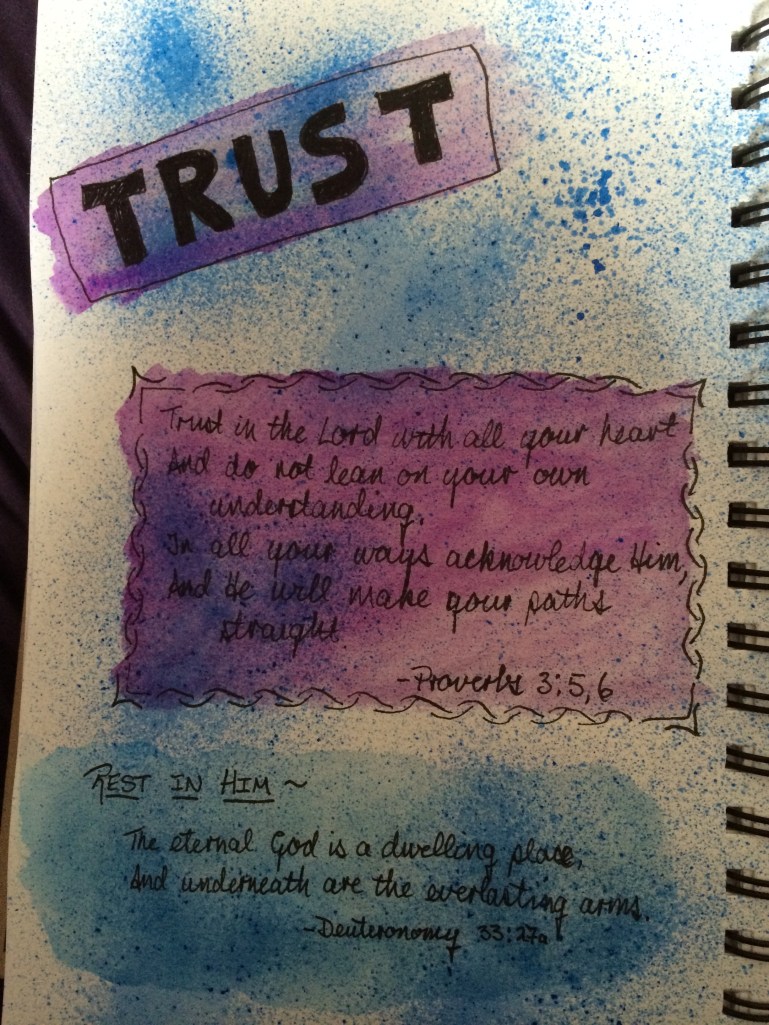 TRUST
Trust in the Lord with all your heart
And do not lean on your own
understanding.
In all your ways acknowledge Him,
And He will make your paths
straight
-Proverbs 3:5,6
REST IN HIM ~
The eternal God is a dwelling place,
And underneath are the everlasting arms.
-Deuteronomy 33:27a